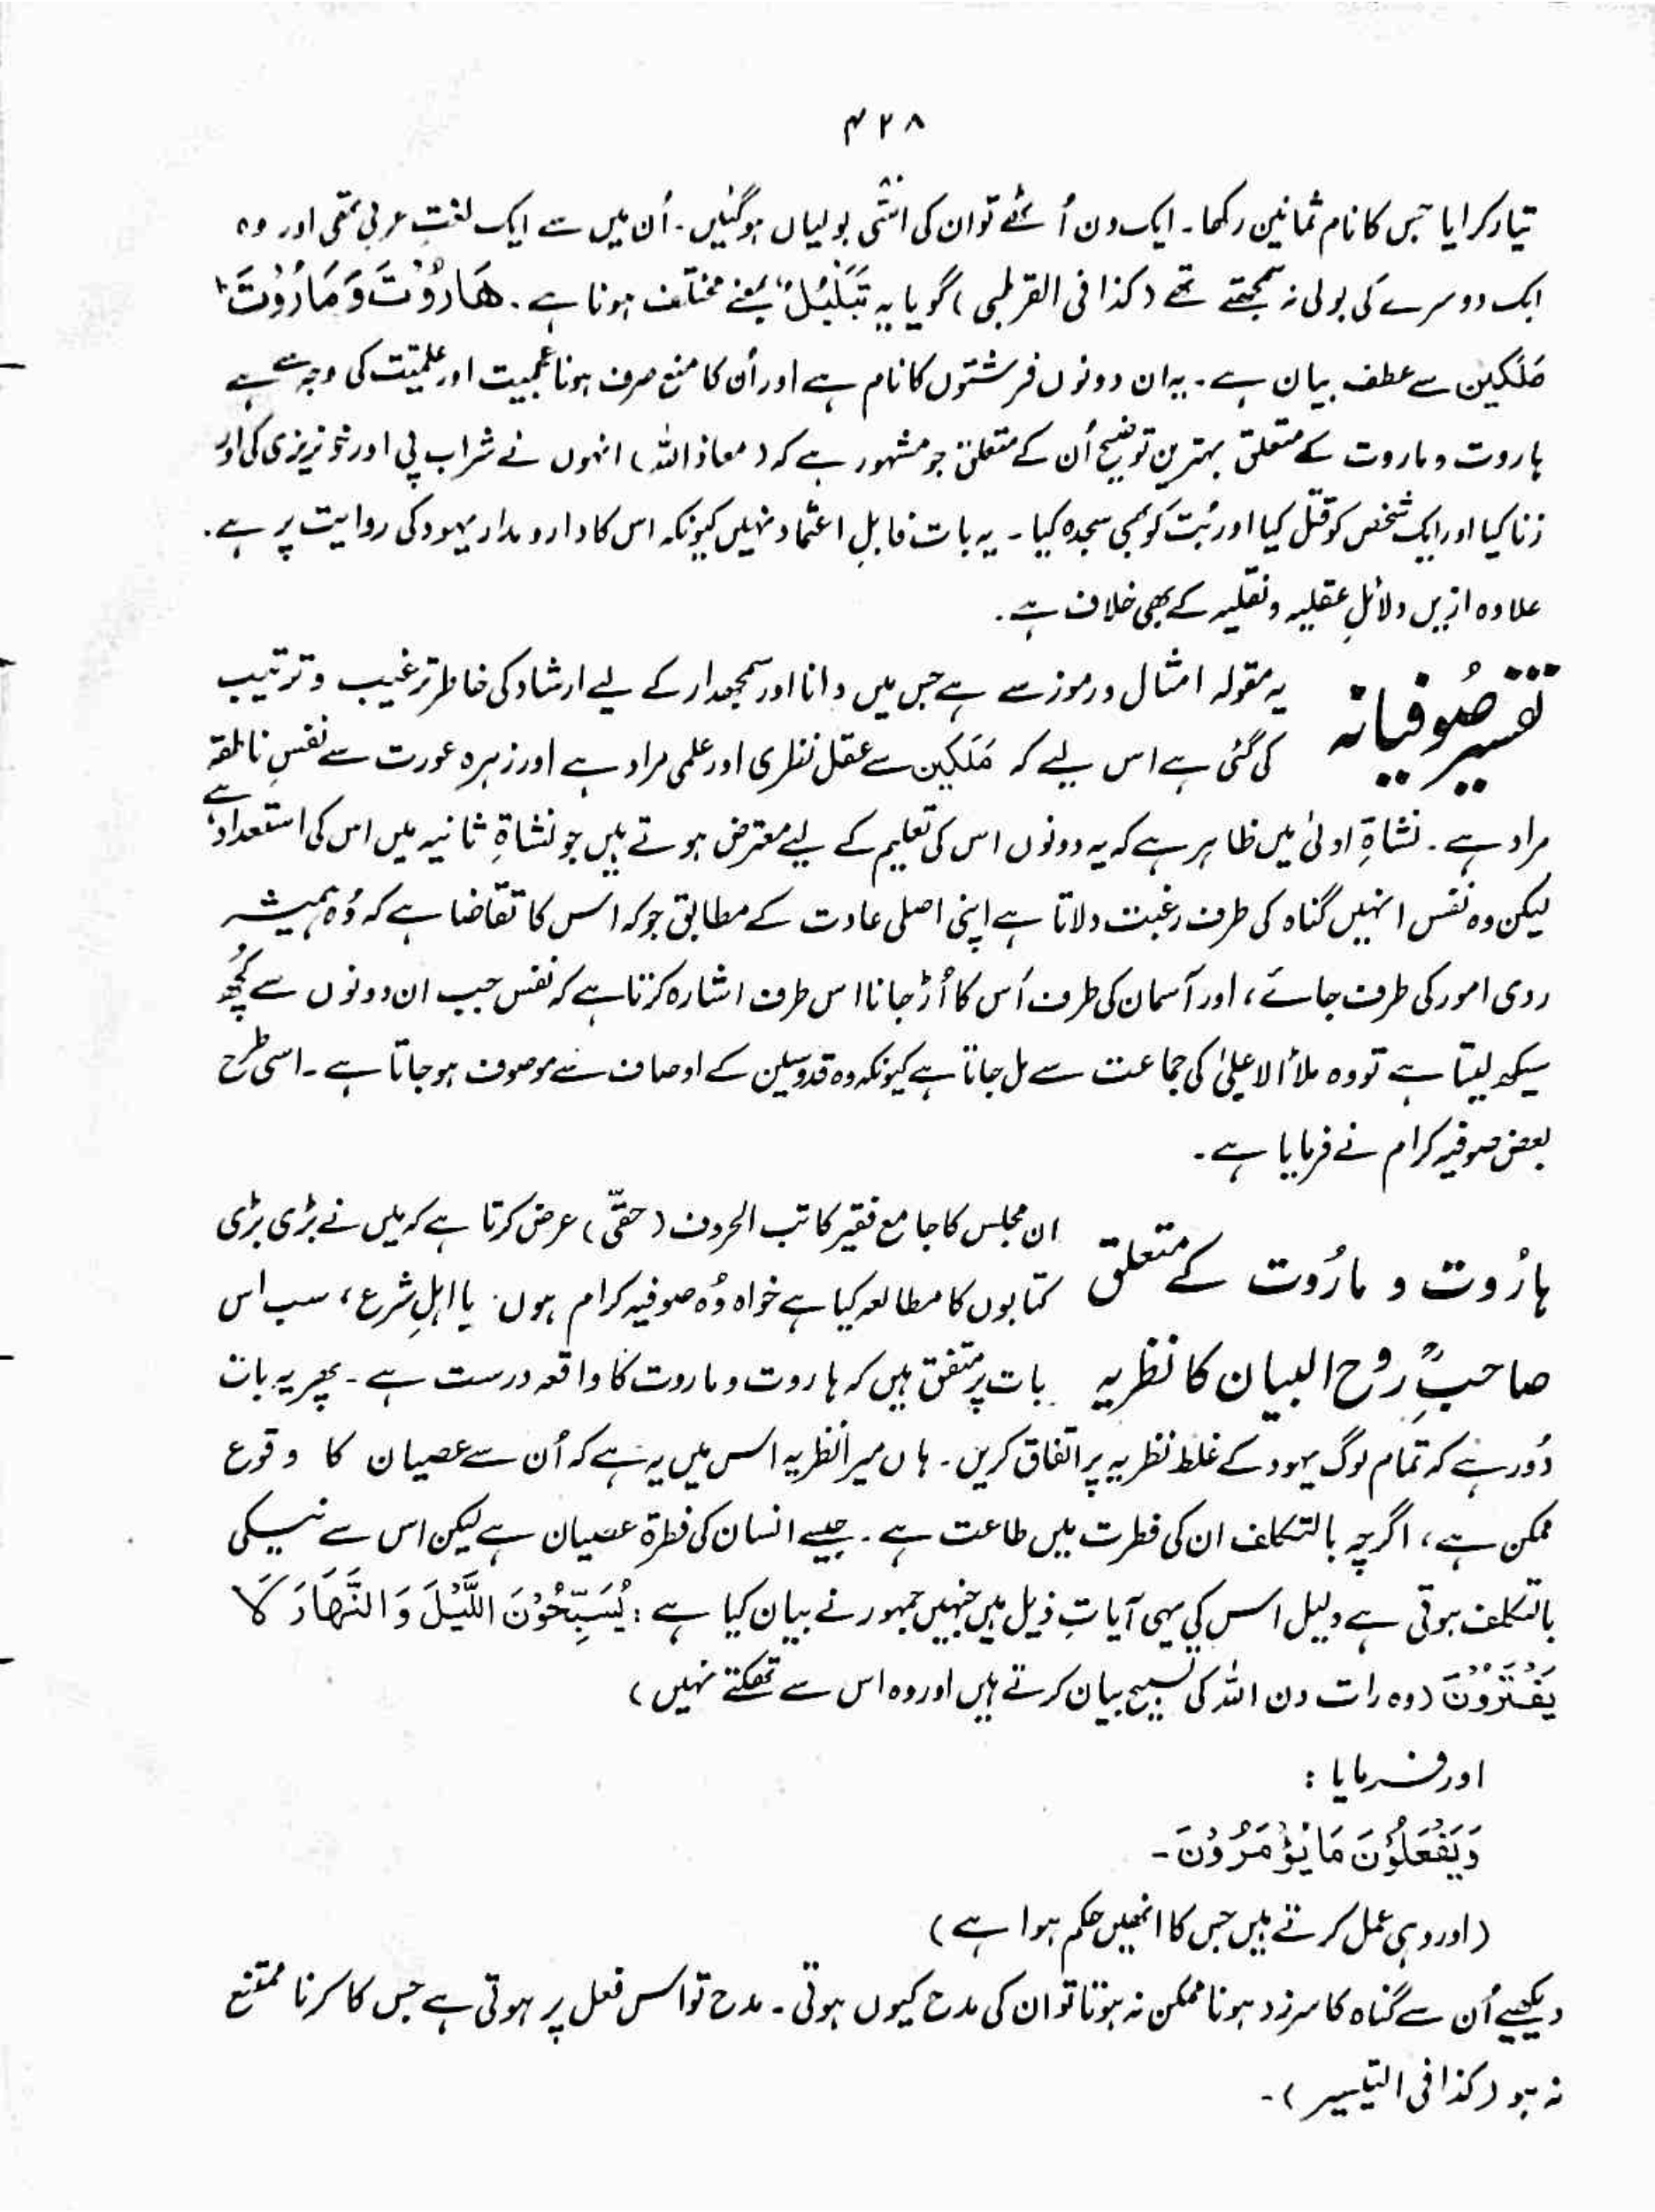 ۴۲۸
تیار کرایا جس کا نام ثمانین رکھا۔ ایک دن اُٹھے تو ان کی اسّی بولیاں ہوگئیں۔ اُن میں سے ایک لغتِ عربی تھی اور وہ
ایک دوسرے کی بولی نہ سمجھتے تھے (کذا فی القرطبی) گویا یہ تَبَلْبُلْ بمعنے مختلف ہونا ہے۔ ھَارُوْتَ وَمَارُوْتَ ط
مَلَکَین سے عطف بیان ہے۔ یہ ان دونوں فرشتوں کا نام ہے اور اُن کا منع صرف ہونا عجمیت اور علمیّت کی وجہ سے ہے
ہاروت و ماروت کے متعلق بہترین توضیح اُن کے متعلق جو مشہور ہے کہ (معاذ اللہ) انہوں نے شراب پی اور خونریزی کی اور
زنا کیا اور ایک شخص کو قتل کیا اور بُت کو بھی سجدہ کیا۔ یہ بات قابلِ اعتماد نہیں کیونکہ اس کا دار و مدار یہود کی روایت پر ہے۔
علاوہ ازیں دلائلِ عقلیہ و نقلیہ کے بھی خلاف ہے۔
تفسیر صُوفیانہ یہ مقولہ امثال و رموز سے ہے جس میں دانا اور سمجھدار کے لیے ارشاد کی خاطر ترغیب و ترتیب
کی گئی ہے اس لیے کہ مَلَکَین سے عقل نظری اور علمی مراد ہے اور زہرہ عورت سے نفسِ ناطقہ
مراد ہے۔ نشاۃِ اولیٰ میں ظاہر ہے کہ یہ دونوں اس کی تعلیم کے لیے معترض ہوتے ہیں جو نشاۃِ ثانیہ میں اس کی استعداد ہے
لیکن وہ نفس انہیں گناہ کی طرف رغبت دلاتا ہے اپنی اصلی عادت کے مطابق جو کہ اس کا تقاضا ہے کہ وُہ ہمیشہ
ردی امور کی طرف جائے، اور آسمان کی طرف اُس کا اُڑ جانا اس طرف اشارہ کرتا ہے کہ نفس جب ان دونوں سے کچُھ
سیکھ لیتا ہے تو وہ ملأ الاعلیٰ کی جماعت سے مل جاتا ہے کیونکہ وہ قدوسین کے اوصاف سے موصوف ہو جاتا ہے۔ اسی طرح
بعض صوفیہ کرام نے فرمایا ہے۔
ہارُوت و مارُوت کے متعلق ان مجلس کا جامع فقیر کاتب الحروف (حقّی) عرض کرتا ہے کہ میں نے بڑی بڑی
کتابوں کا مطالعہ کیا ہے خواہ وُہ صوفیہ کرام ہوں یا اہلِ شرع، سب اس
صاحبِ رُوح البیان کا نظریہ بات پر متفق ہیں کہ ہاروت و ماروت کا واقعہ درست ہے۔ پھر یہ بات
دُور ہے کہ تمام لوگ یہود کے غلط نظریہ پر اتفاق کریں۔ ہاں میرا نظریہ اس میں یہ ہے کہ اُن سے عصیان کا وقوع
ممکن ہے، اگرچہ بالتکلف ان کی فطرت میں طاعت ہے۔ جیسے انسان کی فطرۃ عصیان ہے لیکن اس سے نیکی
بالتکلف ہوتی ہے دلیل اس کی یہی آیاتِ ذیل ہیں جنہیں جمہور نے بیان کیا ہے: یُسَبِّحُوْنَ اللَّیْلَ وَ النَّھَارَ لَا
یَفْتُرُوْنَ (وہ رات دن اللہ کی تسبیح بیان کرتے ہیں اور وہ اس سے تھکتے نہیں)
اور فرمایا :
وَیَفْعَلُوْنَ مَا یُؤْمَرُوْنَ۔
(اور وہی عمل کرتے ہیں جس کا انھیں حکم ہوا ہے)
دیکھیے اُن سے گناہ کا سرزد ہونا ممکن نہ ہوتا تو ان کی مدح کیوں ہوتی۔ مدح تو اس فعل پر ہوتی ہے جس کا کرنا ممتنع
نہ ہو (کذا فی التیسیر)۔